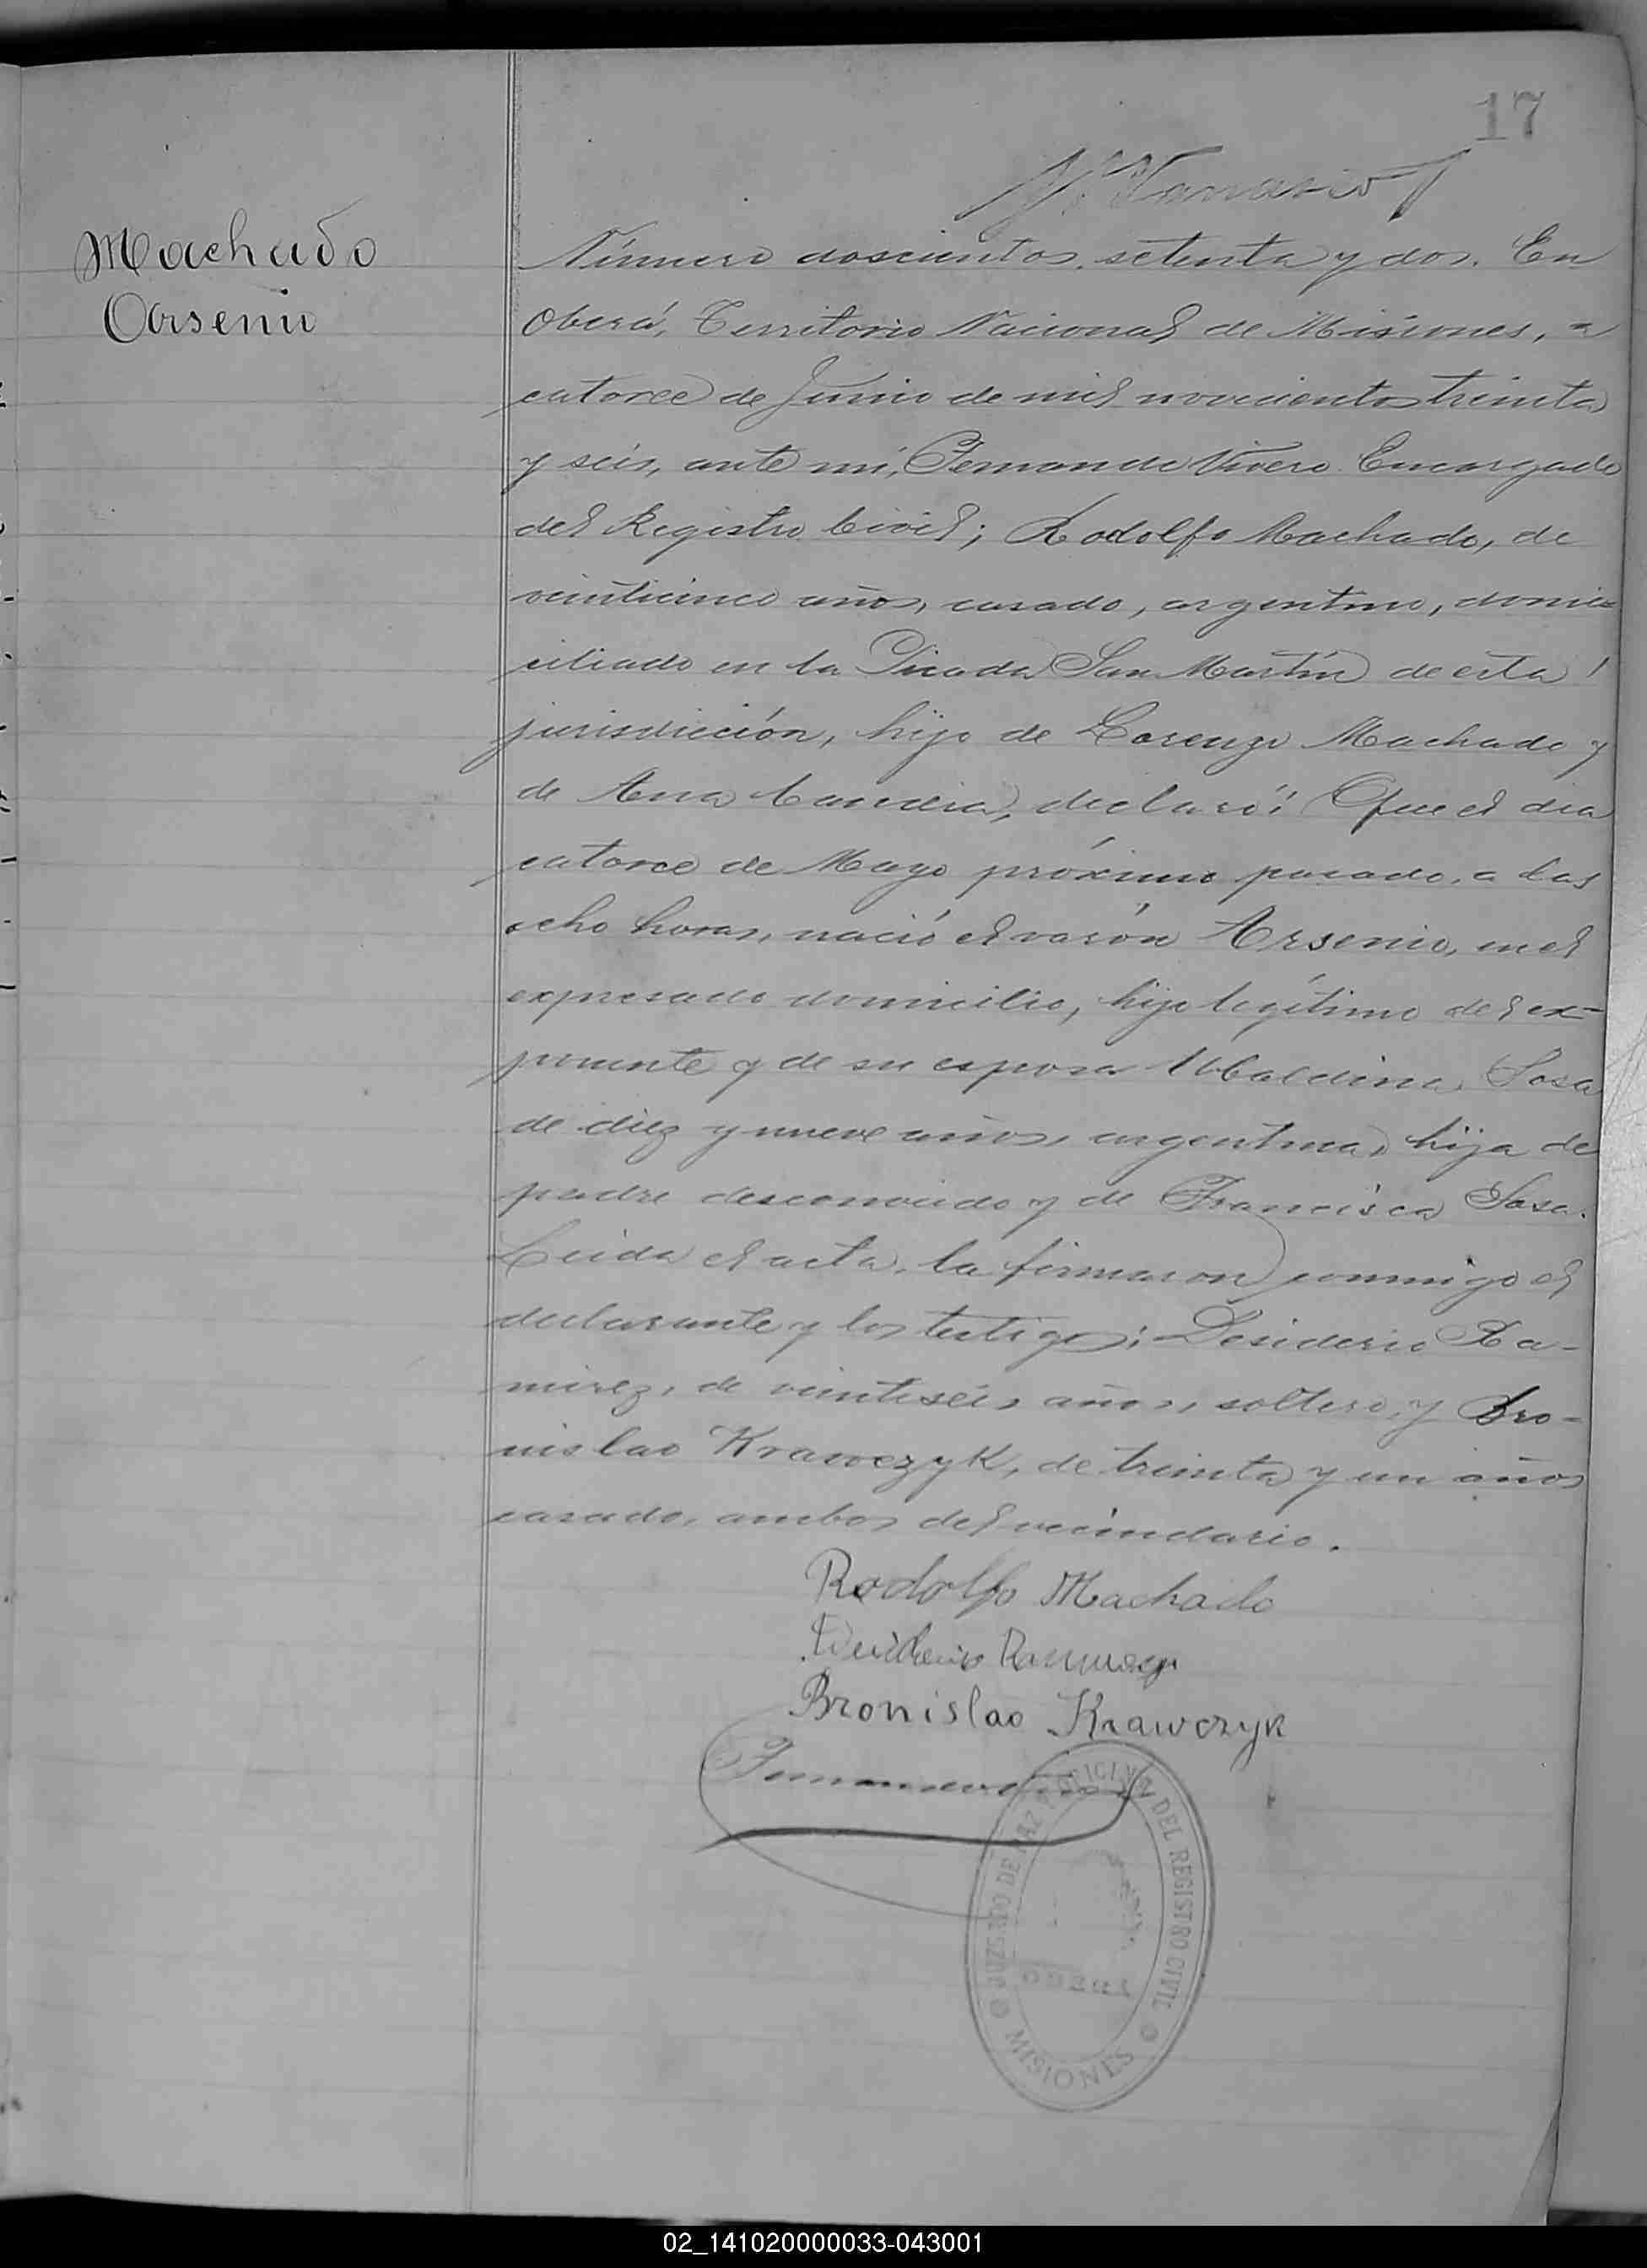 17
Machado
Arsenio
Número doscientos setenta y dos. En
Oberá, Territorio Nacional de Misiones, a
catorce de Junio de mil novecientos treinta
y seis, ante mí, Fernando Vivero Encargado
del Registro Civil; Rodolfo Machado, de
veinticinco años, casado, argentino, domi-
ciliado en la Picada San Martín de esta
jurisdicción, hijo de Lorenzo Machado y
de Ana declaró: Que el dia
catorce de Mayo próximo pasado, a las
ocho horas, nació el varón Arsenio, en el
expresado domicilio, hijo legítimo del ex-
ponente y de su esposa Ubaldina Sosa
de diez y nueve años, argentina, hija de
padre desconocido y de Francisca Sosa.
Leida el acta, la firmaron conmigo el
declarante y los testigos: Desiderio Ra-
mirez, de veintiséis años, soltero, y Bro-
nislao Krawczyk, de treinta y un años
casado, ambos del vecindario.
Rodolfo Machado
Desiderio Ramirez
Bronislao Krawczyk
JUZGADO DE PAZ Y OFICINA DEL REGISTRO CIVIL
OBERA
MISIONES
02_141020000033-043001